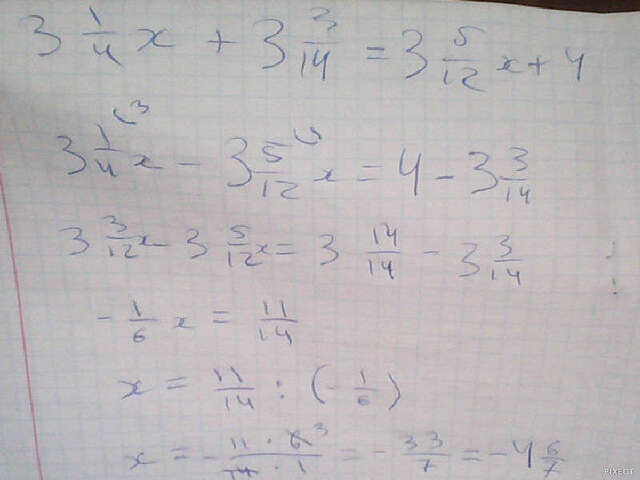 3 1/4 x + 3 3/14 = 3 5/12 x + 4
3 1/4 ⁽³ x - 3 5/12 ⁽ x = 4 - 3 3/14
3 3/12 x - 3 5/12 x = 3 14/14 - 3 3/14
- 1/6 x = 11/14
x = 11/14 : (- 1/6)
x = - 11 · 6 ³ / 14 · 1 = - 33/7 = -4 6/7
PIXECT